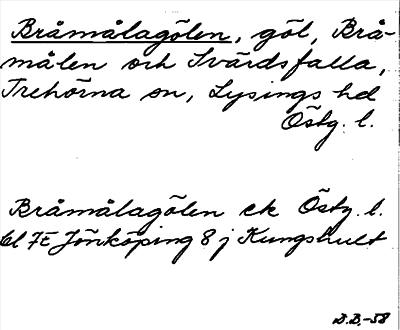 Bråmålagölen, göl, Brå-
målen och Svärdsfalla,
Trehörna sn, Lysings hd
Östg. l.
Bråmålagölen ek Östg. l.
Bl 7E Jönköping 8 j Kungshult
B.B.-58